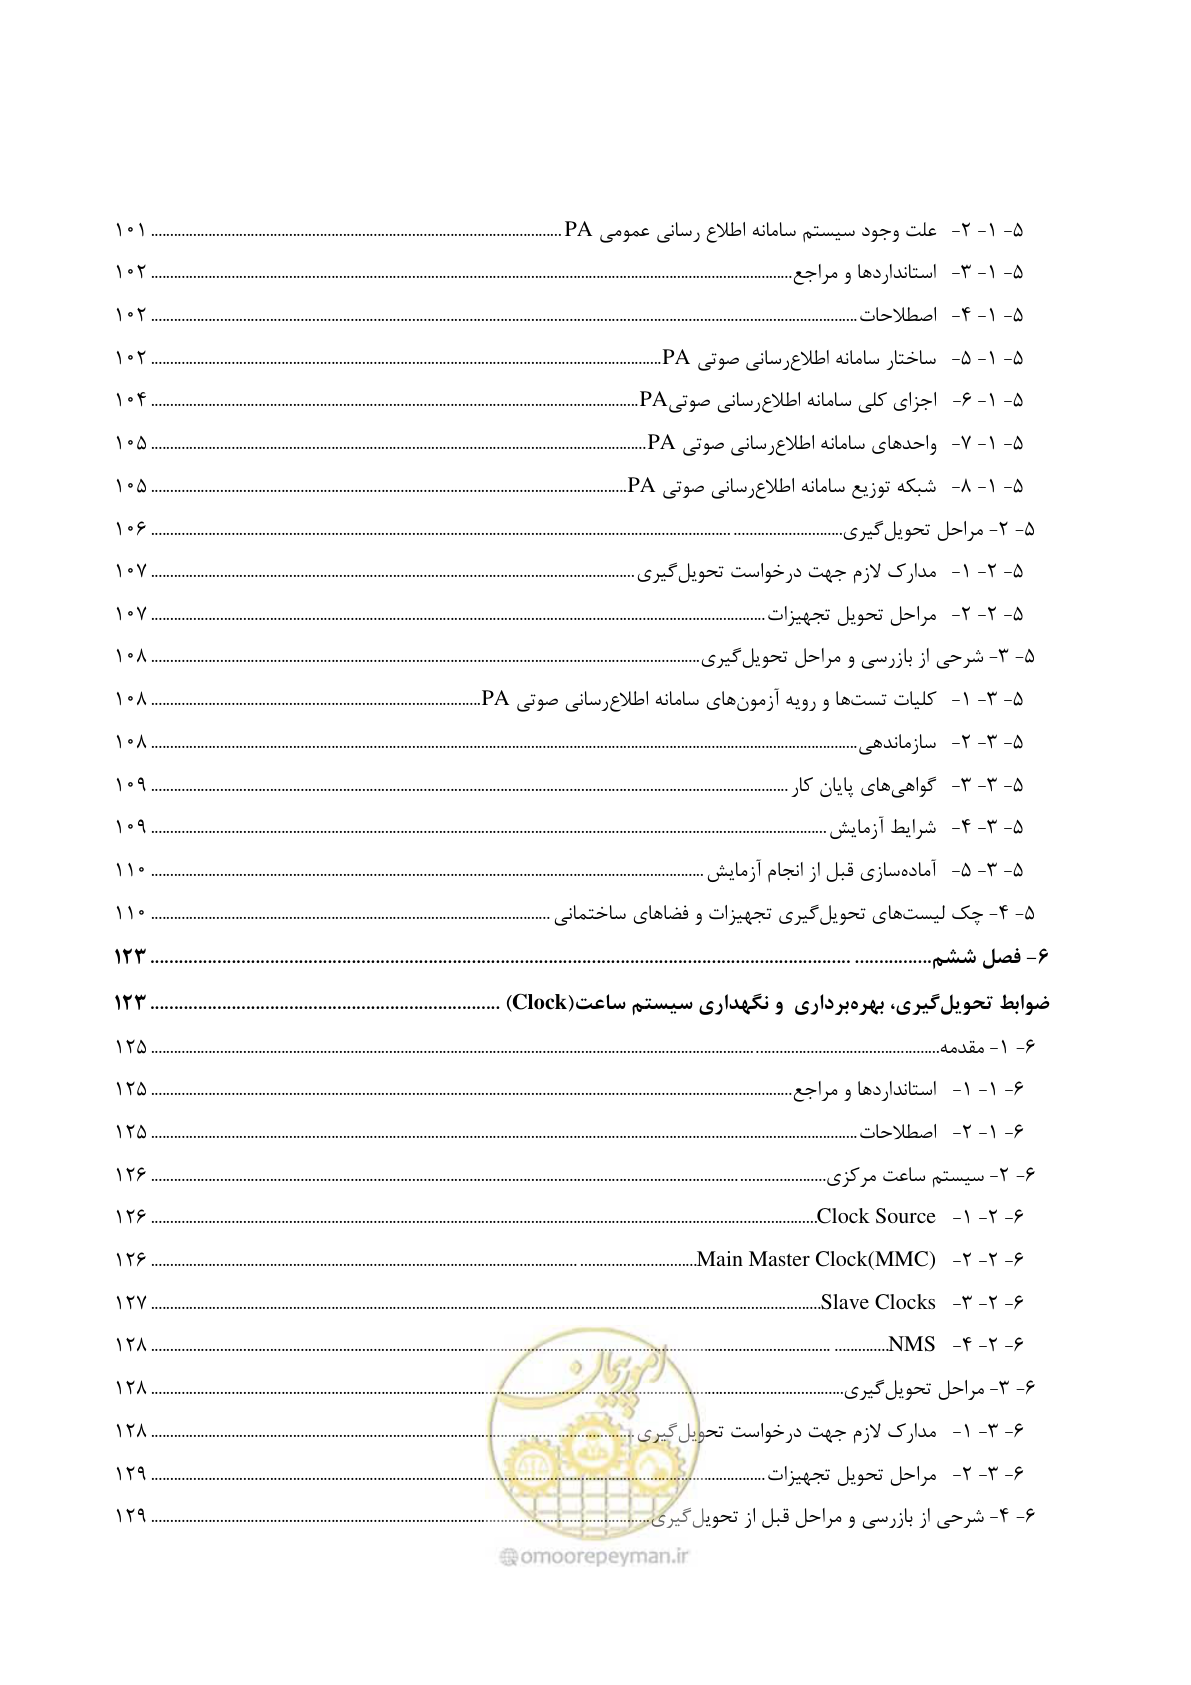 ۵- ۱- ۲- علت وجود سیستم سامانه اطلاع رسانی عمومی PA ........ ۱۰۱
۵- ۱- ۳- استانداردها و مراجع ........ ۱۰۲
۵- ۱- ۴- اصطلاحات ........ ۱۰۲
۵- ۱- ۵- ساختار سامانه اطلاع‌رسانی صوتی PA ........ ۱۰۲
۵- ۱- ۶- اجزای کلی سامانه اطلاع‌رسانی صوتیPA ........ ۱۰۴
۵- ۱- ۷- واحدهای سامانه اطلاع‌رسانی صوتی PA ........ ۱۰۵
۵- ۱- ۸- شبکه توزیع سامانه اطلاع‌رسانی صوتی PA ........ ۱۰۵
۵- ۲- مراحل تحویل‌گیری ........ ۱۰۶
۵- ۲- ۱- مدارک لازم جهت درخواست تحویل‌گیری ........ ۱۰۷
۵- ۲- ۲- مراحل تحویل تجهیزات ........ ۱۰۷
۵- ۳- شرحی از بازرسی و مراحل تحویل‌گیری ........ ۱۰۸
۵- ۳- ۱- کلیات تست‌ها و رویه آزمون‌های سامانه اطلاع‌رسانی صوتی PA ........ ۱۰۸
۵- ۳- ۲- سازماندهی ........ ۱۰۸
۵- ۳- ۳- گواهی‌های پایان کار ........ ۱۰۹
۵- ۳- ۴- شرایط آزمایش ........ ۱۰۹
۵- ۳- ۵- آماده‌سازی قبل از انجام آزمایش ........ ۱۱۰
۵- ۴- چک لیست‌های تحویل‌گیری تجهیزات و فضاهای ساختمانی ........ ۱۱۰
۶- فصل ششم ........ ۱۲۳
ضوابط تحویل‌گیری، بهره‌برداری و نگهداری سیستم ساعت(Clock) ........ ۱۲۳
۶- ۱- مقدمه ........ ۱۲۵
۶- ۱- ۱- استانداردها و مراجع ........ ۱۲۵
۶- ۱- ۲- اصطلاحات ........ ۱۲۵
۶- ۲- سیستم ساعت مرکزی ........ ۱۲۶
۶- ۲- ۱- Clock Source ........ ۱۲۶
۶- ۲- ۲- Main Master Clock(MMC) ........ ۱۲۶
۶- ۲- ۳- Slave Clocks ........ ۱۲۷
۶- ۲- ۴- NMS ........ ۱۲۸
۶- ۳- مراحل تحویل‌گیری ........ ۱۲۸
۶- ۳- ۱- مدارک لازم جهت درخواست تحویل‌گیری ........ ۱۲۸
۶- ۳- ۲- مراحل تحویل تجهیزات ........ ۱۲۹
۶- ۴- شرحی از بازرسی و مراحل قبل از تحویل‌گیری ........ ۱۲۹
امور پیمان
@omoorepeyman.ir